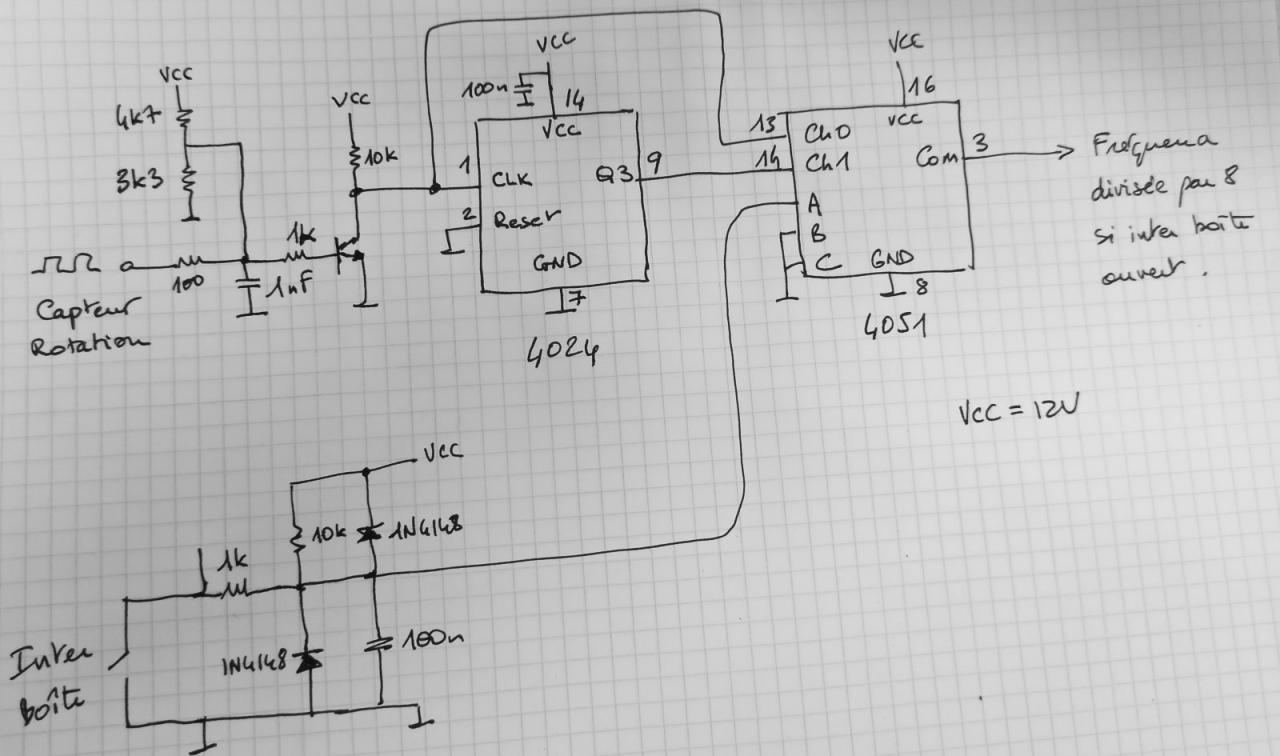 VCC
4k7
3k3
100
1nF
1k
Capteur
Rotation
VCC
10k
VCC
100n
14
VCC
1
CLK
2
Reset
Q3
9
GND
7
4024
VCC
16
VCC
13
Ch0
14
Ch1
Com
3
A
B
C
GND
8
4051
divisée par 8
si inter boîte
ouvert.
VCC = 12V
VCC
10k
1N4148
1k
1N4148
100n
Inter
boîte